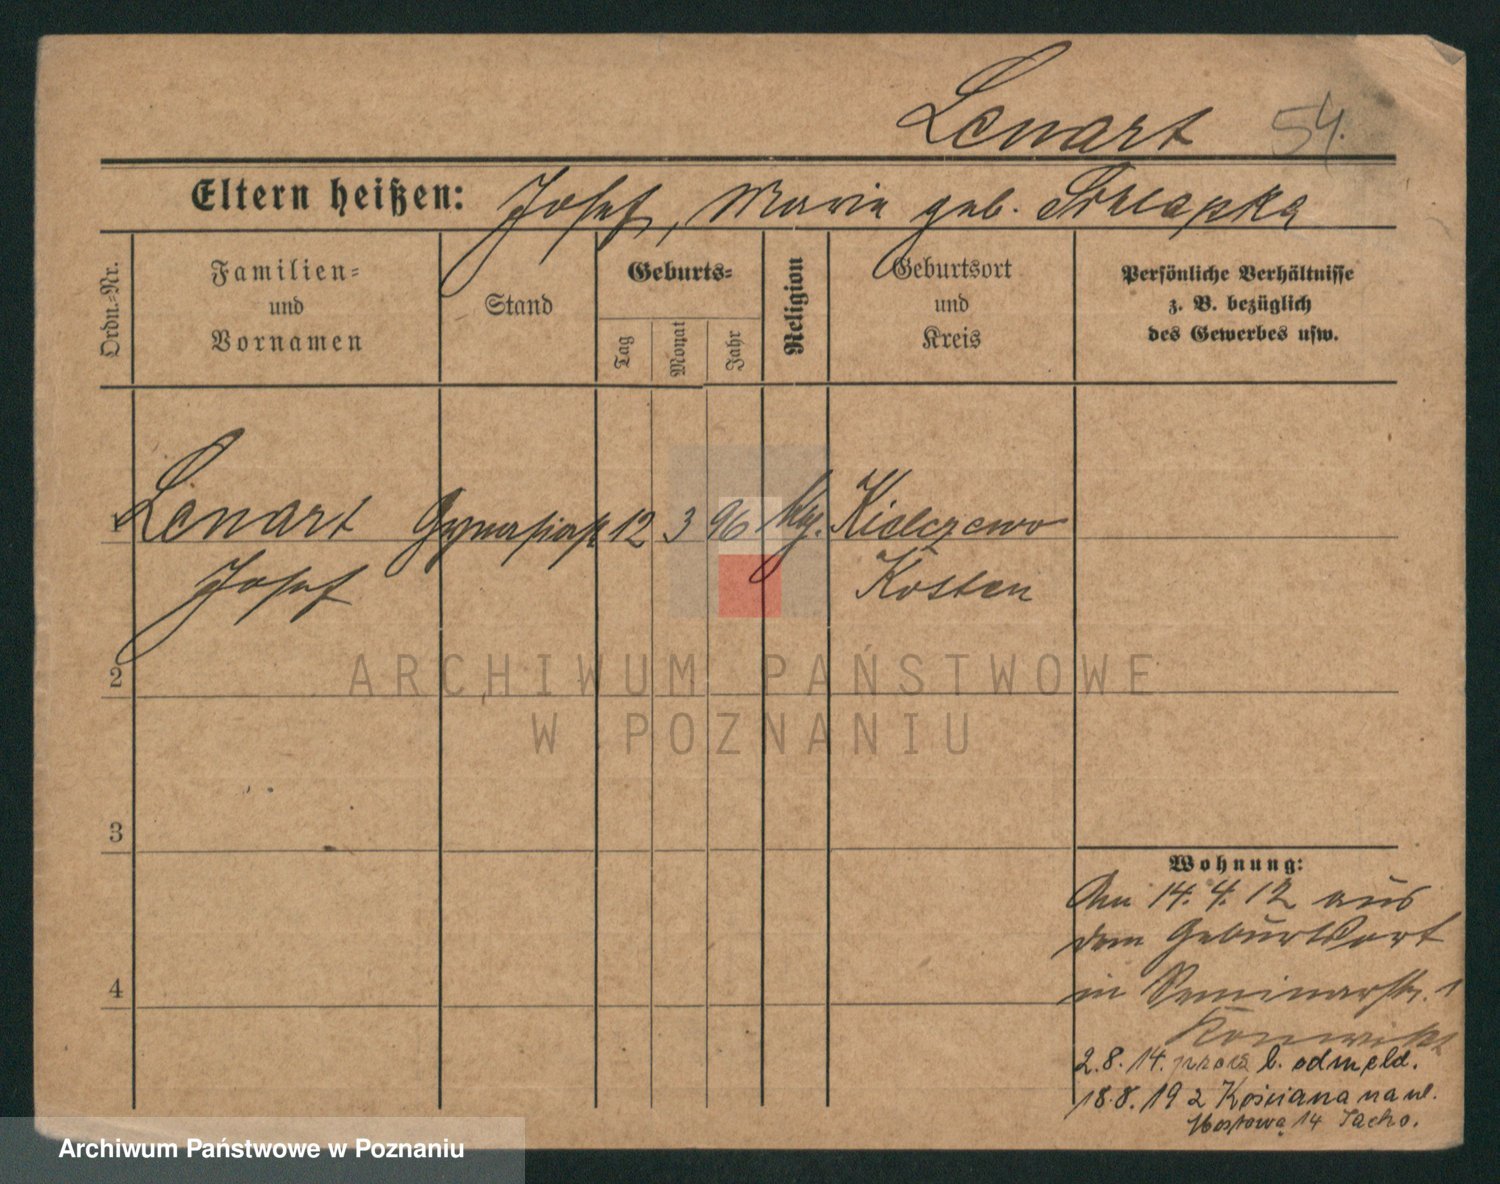 Lenart 54.
Eltern heißen: Josef, Marie geb.
Ordn.=Nr.
Familien=
und
Vornamen
Stand
Geburts=
Tag
Monat
Jahr
Religion
Geburtsort
und
Kreis
Persönliche Verhältnisse
z. B. bezüglich
des Gewerbes usw.
1 Lenart Gymnasiast 12 3 96 Kielczewo
Josef Kosten
2
ARCHIWUM PAŃSTWOWE
W POZNANIU
3
Wohnung:
Am 14. 4. 12 aus
dem Geburtsort
4
in Seminarstr. 1
Konwikt
2. 8. 14. b. odmeld.
18. 8. 19 z Kościana na ul.
Mostową 14
Archiwum Państwowe w Poznaniu